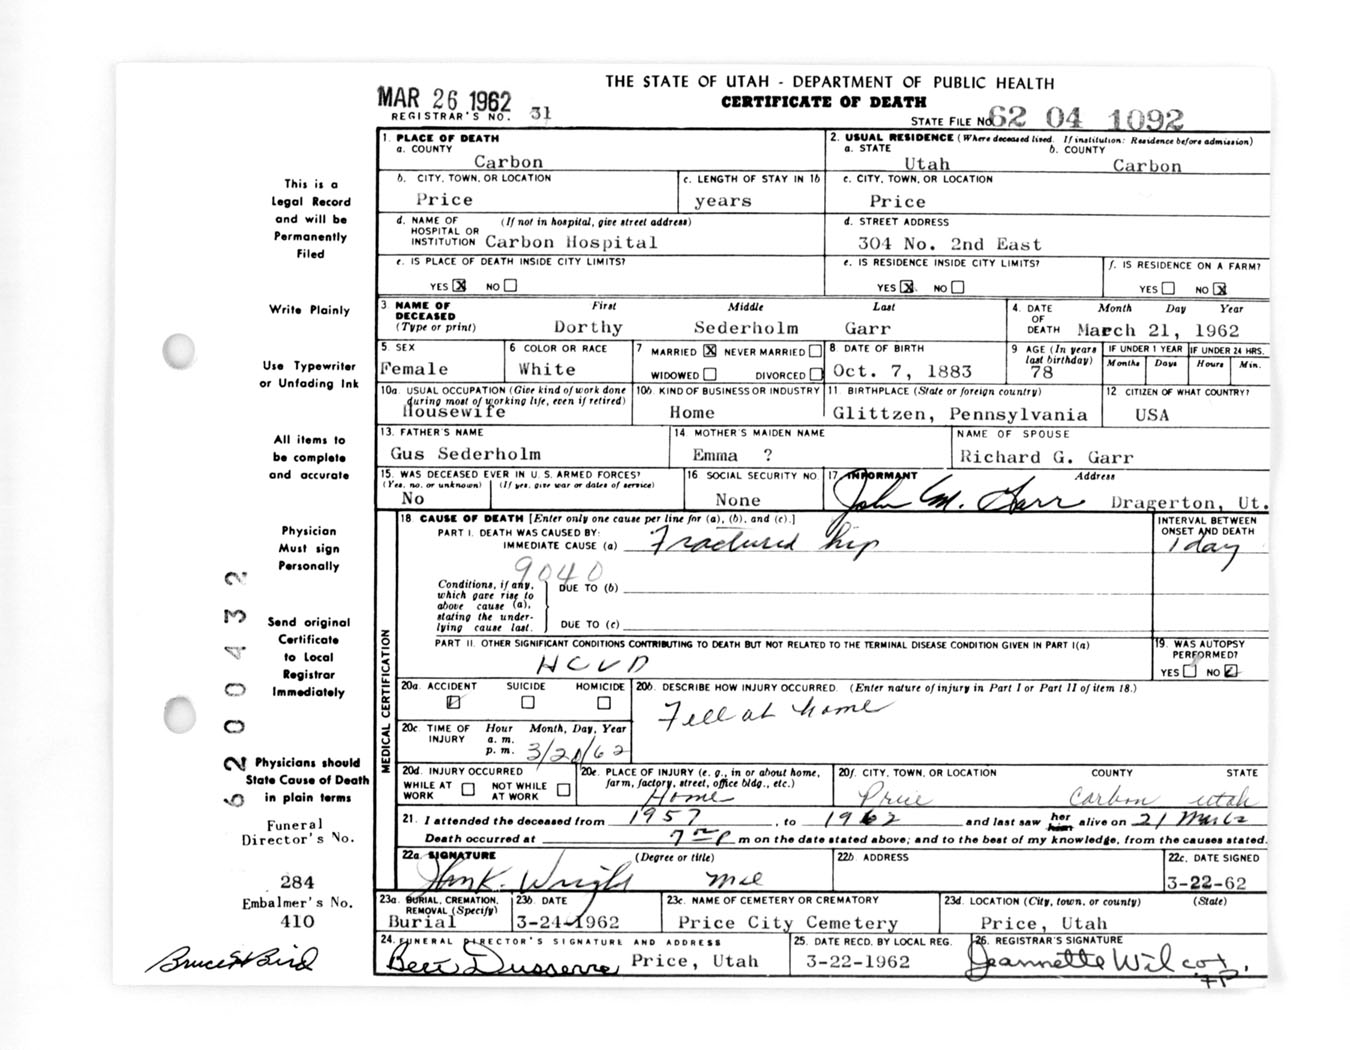 THE STATE OF UTAH - DEPARTMENT OF PUBLIC HEALTH
CERTIFICATE OF DEATH
MAR 26 1962
REGISTRAR'S NO. 31
STATE FILE NO. 62 04 1092
This is a
Legal Record
and will be
Permanently
Filed
Write Plainly
Use Typewriter
or Unfading Ink
All items to
be complete
and accurate
Physician
Must sign
Personally
Send original
Certificate
to Local
Registrar
Immediately
Physicians should
State Cause of Death
in plain terms
62 00432
Funeral
Director's No.
284
Embalmer's No.
410
Bruce H Bird
1. PLACE OF DEATH
a. COUNTY
Carbon
2. USUAL RESIDENCE (Where deceased lived. If institution: Residence before admission)
a. STATE b. COUNTY
Utah Carbon
b. CITY, TOWN, OR LOCATION
Price
c. LENGTH OF STAY IN 1b
years
c. CITY, TOWN, OR LOCATION
Price
d. NAME OF (If not in hospital, give street address)
HOSPITAL OR
INSTITUTION Carbon Hospital
d. STREET ADDRESS
304 No. 2nd East
e. IS PLACE OF DEATH INSIDE CITY LIMITS?
YES X NO
e. IS RESIDENCE INSIDE CITY LIMITS?
YES X NO
f. IS RESIDENCE ON A FARM?
YES NO X
3. NAME OF DECEASED (Type or print) First Middle Last
Dorthy Sederholm Garr
4. DATE OF DEATH Month Day Year
March 21, 1962
5. SEX
Female
6 COLOR OR RACE
White
7 MARRIED X NEVER MARRIED
WIDOWED DIVORCED
8 DATE OF BIRTH
Oct. 7, 1883
9 AGE (In years last birthday)
78
IF UNDER 1 YEAR IF UNDER 24 HRS.
Months Days Hours Min.
10a. USUAL OCCUPATION (Give kind of work done
during most of working life, even if retired)
Housewife
10b. KIND OF BUSINESS OR INDUSTRY
Home
11 BIRTHPLACE (State or foreign country)
Glittzen, Pennsylvania
12 CITIZEN OF WHAT COUNTRY?
USA
13. FATHER'S NAME
Gus Sederholm
14 MOTHER'S MAIDEN NAME
Emma ?
NAME OF SPOUSE
Richard G. Garr
15. WAS DECEASED EVER IN U. S. ARMED FORCES?
(Yes, no, or unknown) (If yes, give war or dates of service)
No
16 SOCIAL SECURITY NO.
None
17 INFORMANT Address
John M. Garr Dragerton, Ut.
MEDICAL CERTIFICATION
18. CAUSE OF DEATH [Enter only one cause per line for (a), (b), and (c).]
PART I. DEATH WAS CAUSED BY:
IMMEDIATE CAUSE (a) Fractured hip
INTERVAL BETWEEN
ONSET AND DEATH
1 day
9040
Conditions, if any,
which gave rise to
above cause (a),
stating the under-
lying cause last.
DUE TO (b)
DUE TO (c)
PART II. OTHER SIGNIFICANT CONDITIONS CONTRIBUTING TO DEATH BUT NOT RELATED TO THE TERMINAL DISEASE CONDITION GIVEN IN PART I(a)
HCVD
19. WAS AUTOPSY
PERFORMED?
YES NO
20a. ACCIDENT SUICIDE HOMICIDE
20b. DESCRIBE HOW INJURY OCCURRED. (Enter nature of injury in Part I or Part II of item 18.)
Fell at home
20c. TIME OF INJURY Hour Month, Day, Year
a. m.
p. m. 3/20/62
20d. INJURY OCCURRED
WHILE AT WORK NOT WHILE AT WORK
20e. PLACE OF INJURY (e. g., in or about home,
farm, factory, street, office bldg., etc.)
Home
20f. CITY, TOWN, OR LOCATION COUNTY STATE
Price Carbon Utah
21. I attended the deceased from 1957, to 1962 and last saw her him alive on 21 Mar 62
Death occurred at 7 00 P m on the date stated above; and to the best of my knowledge, from the causes stated.
22a. SIGNATURE (Degree or title)
John K. Wright MD
22b. ADDRESS
22c. DATE SIGNED
3-22-62
23a. BURIAL, CREMATION,
REMOVAL (Specify)
Burial
23b. DATE
3-24-1962
23c. NAME OF CEMETERY OR CREMATORY
Price City Cemetery
23d. LOCATION (City, town, or county) (State)
Price, Utah
24. FUNERAL DIRECTOR'S SIGNATURE AND ADDRESS
Bert Dusserre Price, Utah
25. DATE RECD. BY LOCAL REG.
3-22-1962
26. REGISTRAR'S SIGNATURE
Jeannette Wilcox,